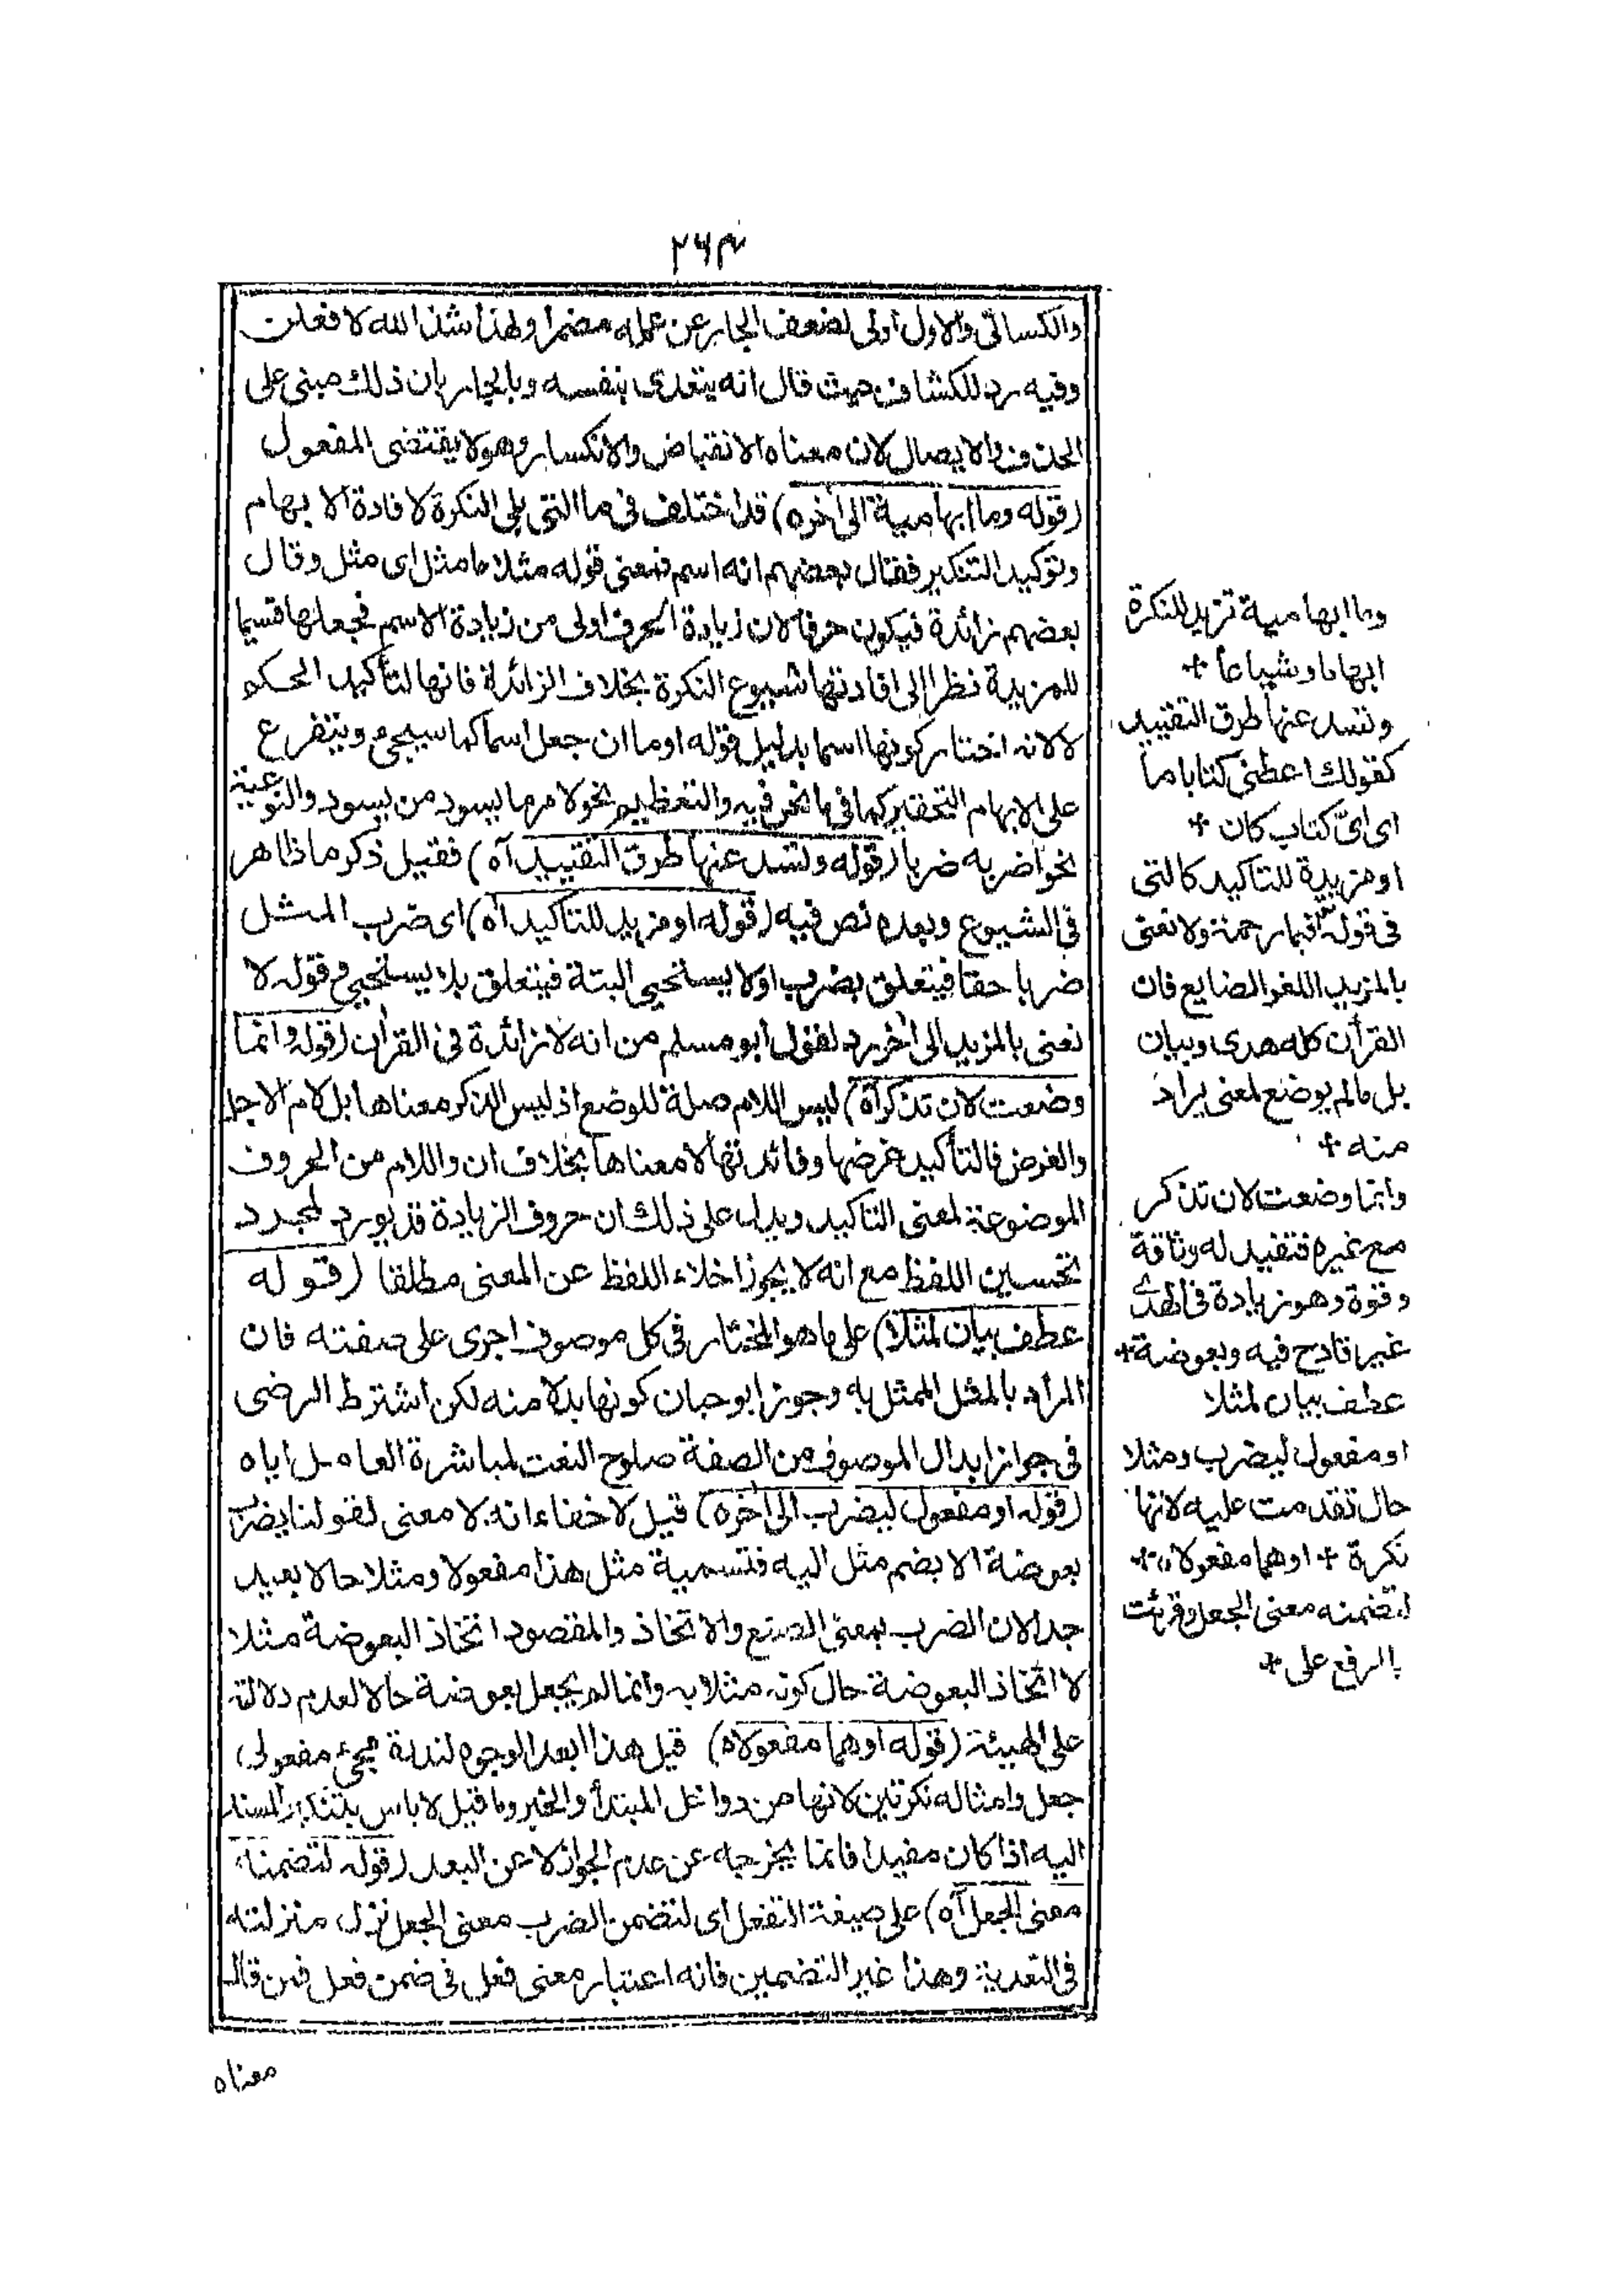 ٢٦٣
والكسائى والاول اولى لضعف الجار عن عمله مضمرا ولهذا شذ الله لافعلن
وفيه رد للكشاف حيث قال انه يتعدى بنفسه وبالجار بان ذلك مبنى على
الحذف والايصال لان معناه الانقباض والانكسار وهو لا يقتضى المفعول
(قوله وما ابهامية الى اخره) قد اختلف فى ما التى يلى النكرة لافادة الابهام
وتوكيد التنكير فقال بعضهم انه اسم فمعنى قوله مثلا ما مثل اى مثل وقال
بعضهم زائدة فيكون حرفا لان زيادة الحرف اولى من زيادة الاسم فجعلها قسيما
للمزيدة نظرا الى افادتها شيوع النكرة بخلاف الزائدة فانها لتأكيد الحكم
لا لانه اختار كونها اسما بدليل قوله او ما ان جعل اسما كما سيجىء ويتفرع
على الابهام التحقير كما فى ما نحن فيه والتعظيم نحو لامر ما يسود من يسود والنوعية
نحو اضربه ضربا (قوله وتسد عنها طرق التقييد آه) فقيل ذكر ما ظاهر
فى الشيوع وبعده نص فيه (قوله او مزيد للتاكيد آه) اى ضرب المثل
ضربا حقا فيتعلق بضرب او لا يستحيى البتة فيتعلق بلا يستحيى وقوله لا
نعنى بالمزيد الى اخره رد لقول ابو مسلم من انه لا زائدة فى القرآن (قوله وانما
وضعت لان تذكر آه) ليس اللام صلة للوضع اذ ليس الذكر معناها بل لام الاجل
والغرض فالتأكيد غرضها وفائدتها لا معناها بخلاف ان واللام من الحروف
الموضوعة لمعنى التاكيد ويدل على ذلك ان حروف الزيادة قد يورد لمجرد
تحسين اللفظ مع انه لا يجوز اخلاء اللفظ عن المعنى مطلقا (قوله
عطف بيان لمثلا) على ما هو المختار فى كل موصوف اجرى على صفته فان
المراد بالمثل الممثل به وجوز ابو حبان كونها بدلا منه لكن اشترط الرضى
فى جواز ابدال الموصوف من الصفة صلوح النعت لمباشرة العامل اياه
(قوله او مفعول ليضرب الى اخره) قيل لا خفاء انه لا معنى لقولنا يضرب
بعوضة الا بضم مثل اليه فتسمية مثل هذا مفعولا ومثلا حالا بعيد
جدا لان الضرب بمعنى الصنع والاتخاذ والمقصود اتخاذ البعوضة مثلا
لا اتخاذ البعوضة حال كونه مثلا به وانما لم يجعل بعوضة حالا لعدم دلالته
على الهيئة (قوله او هما مفعولاه) قيل هذا ابعد الوجوه لندرة مجىء مفعولى
جعل وامثاله نكرتين لانها من دواخل المبتدأ والخبر وما قيل لا باس بتنكير المسند
اليه اذا كان مفيدا فانما يخرجه عن عدم الجواز لا عن البعد (قوله لتضمنه
معنى الجعل آه) على صيغة التفعل اى لتضمن الضرب معنى الجعل نزل منزلته
فى التعدية وهذا غير التضمين فانه اعتبار معنى فعل فى ضمن فعل فمن قال
معناه
وما ابهامية تزيد للنكرة
ابهاما وشياعا +
وتسد عنها طرق التقييد
كقولك اعطنى كتابا ما
اى اىّ كتاب كان +
او مزيدة للتاكيد كالتى
فى قوله فبما رحمة ولا نعنى
بالمزيد اللغو الضايع فان
القرآن كله هدى وبيان
بل ما لم يوضع لمعنى يراد
منه +
وانما وضعت لان تذكر
مع غيره فتفيد له وثاقة
وقوة وهو زيادة فى الهدى
غير قادح فيه وبعوضة +
عطف بيان لمثلا
او مفعول ليضرب ومثلا
حال تقدمت عليه لانها
نكرة + او هما مفعولاه +
لتضمنه معنى الجعل وقرئت
بالرفع على +